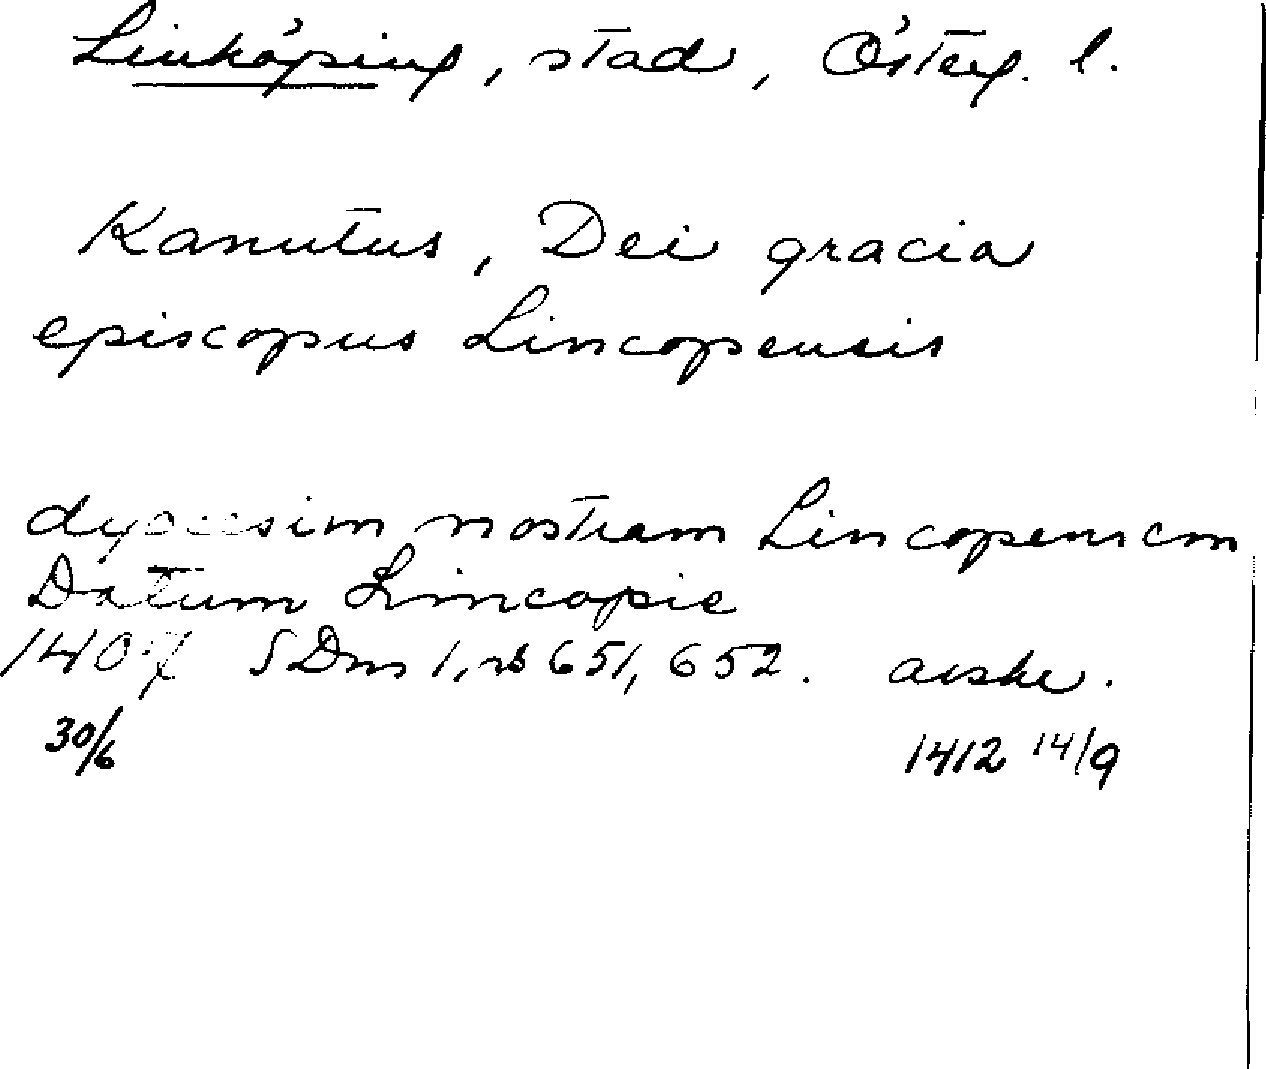 Linköping, stad, Österg. l.
Kanutus, Dei gracia
episcopus Lincopensis
dyocesim nostram Lincopensem
Datum Lincopie
1407 SDns 1, nr 651, 652. avskr.
30/6
1412 14/9